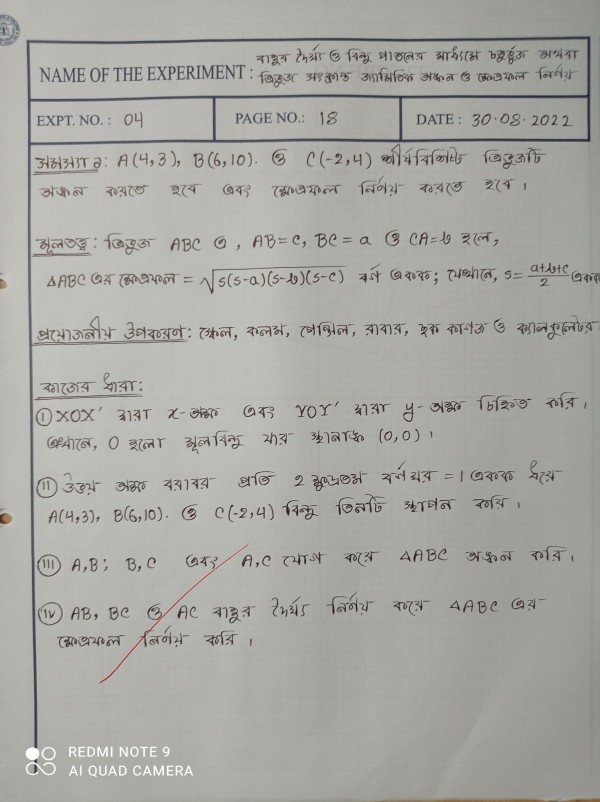 NAME OF THE EXPERIMENT : বাহুর দৈর্ঘ্য ও বিন্দু পাতনের মাধ্যমে চতুর্ভুজ অথবা
ত্রিভুজ সংক্রান্ত জ্যামিতিক অঙ্কন ও ক্ষেত্রফল নির্ণয়
EXPT. NO. : 04 PAGE NO.: 18 DATE : 30.08.2022
সমস্যা ২: A(4,3), B(6,10). ও C(-2,4) শীর্ষবিশিষ্ট ত্রিভুজটি
অঙ্কন করতে হবে এবং ক্ষেত্রফল নির্ণয় করতে হবে।
মূলতত্ত্ব: ত্রিভুজ ABC এ, AB=c, BC=a ও CA=b হলে,
△ABC এর ক্ষেত্রফল = √s(s-a)(s-b)(s-c) বর্গ একক; যেখানে, s= a+b+c/2 একক
প্রয়োজনীয় উপকরণ: স্কেল, কলম, পেন্সিল, রাবার, ছক কাগজ ও ক্যালকুলেটর
কাজের ধারা:
i XOX' দ্বারা x-অক্ষ এবং YOY' দ্বারা y-অক্ষ চিহ্নিত করি।
এখানে, O হলো মূলবিন্দু যার স্থানাঙ্ক (0,0)।
ii উভয় অক্ষ বরাবর প্রতি ২ ক্ষুদ্রতম বর্গঘর = 1 একক ধরে
A(4,3), B(6,10). ও C(-2,4) বিন্দু তিনটি স্থাপন করি।
iii A,B; B,C এবং A,C যোগ করে △ABC অঙ্কন করি।
iv AB, BC ও AC বাহুর দৈর্ঘ্য নির্ণয় করে △ABC এর
ক্ষেত্রফল নির্ণয় করি।
REDMI NOTE 9
AI QUAD CAMERA